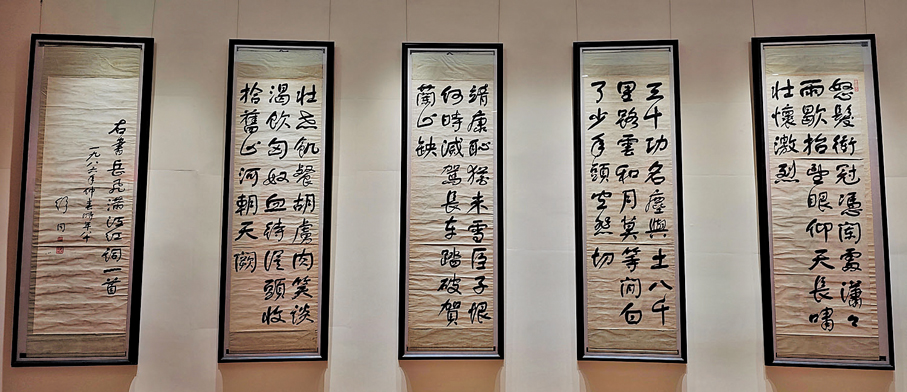 怒髮衝冠憑闌處瀟々
雨歇抬望眼仰天長嘯
壯懷激烈
三十功名塵與土八千
里路雲和月莫等閒白
了少年頭空悲切
靖康恥猶未雪臣子恨
何時滅駕長车踏破賀
蘭山缺
壯志飢餐胡虜肉笑談
渴飲匈奴血待從頭收
拾舊山河朝天闕
右書岳飛滿江紅詞一首
一九八六年仲春
舒同